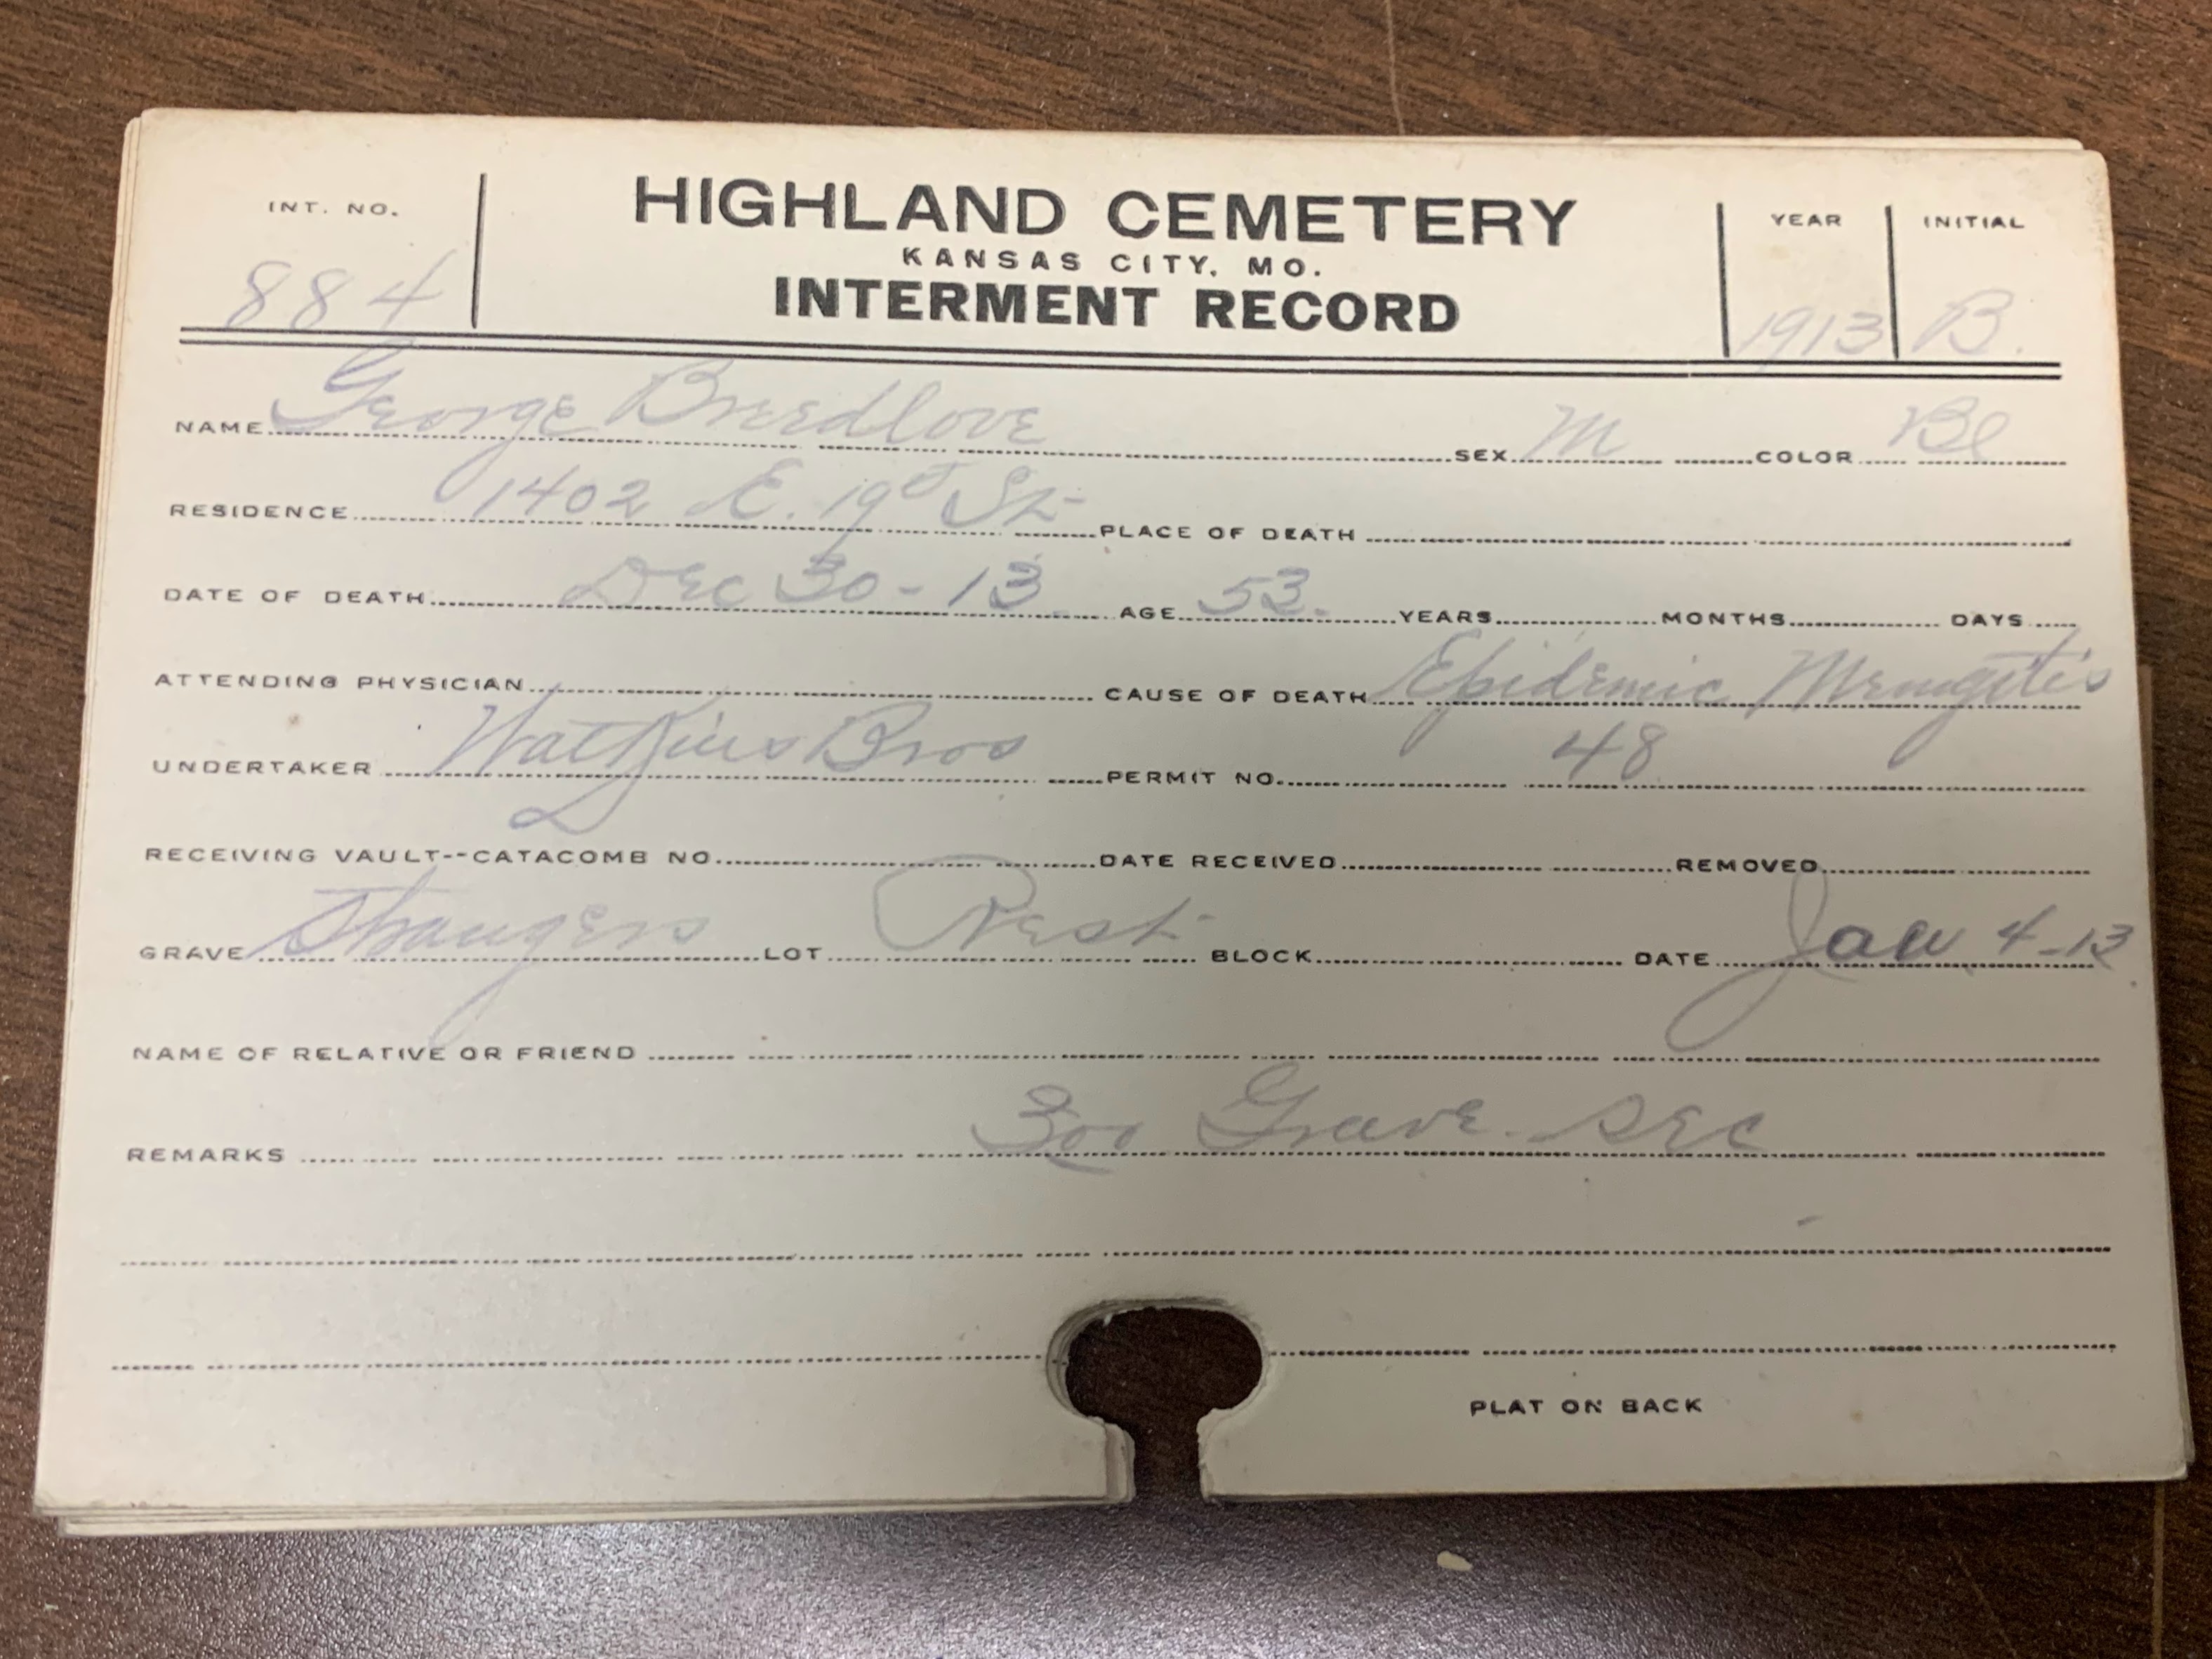 INT. NO. HIGHLAND CEMETERY YEAR INITIAL
KANSAS CITY, MO.
884 INTERMENT RECORD 1913 B.
NAME George Breedlove SEX M COLOR Bl
RESIDENCE 1402 E. 19th St PLACE OF DEATH
DATE OF DEATH Dec 30-13 AGE 53. YEARS MONTHS DAYS
ATTENDING PHYSICIAN CAUSE OF DEATH Epidemic Mengitis
UNDERTAKER Watkins Bros PERMIT NO. 48
RECEIVING VAULT--CATACOMB NO. DATE RECEIVED REMOVED
GRAVE Strangers LOT Rest BLOCK DATE Jan 4-13
NAME OF RELATIVE OR FRIEND
REMARKS 300 Grave. SEC
PLAT ON BACK